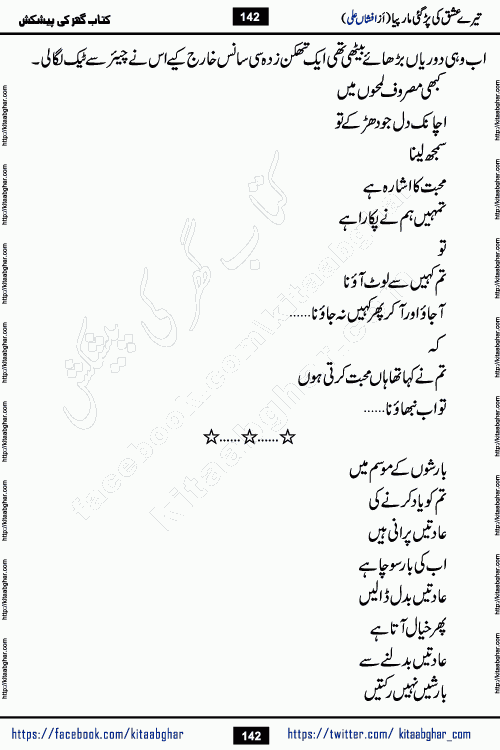 تیرے عشق کی پڑ گئی مار پیا (از افشاں علی)
142
کتاب گھر کی پیشکش
اب وہی دوریاں بڑھائے بیٹھی تھی ایک تھکن زدہ سی سانس خارج کیے اس نے چیئر سے ٹیک لگالی۔
کبھی مصروف لمحوں میں
اچانک دل جو دھڑکے تو
سمجھ لینا
محبت کا اشارہ ہے
تمہیں ہم نے پکارا ہے
تو
تم کہیں سے لوٹ آؤ نا
آجاؤ اور آکر پھر کہیں نہ جاؤ نا......
کہ
تم نے کہا تھا ہاں محبت کرتی ہوں
تو اب نبھاؤ نا......
☆......☆......☆
بارشوں کے موسم میں
تم کو یاد کرنے کی
عادتیں پرانی ہیں
اب کی بار سوچا ہے
عادتیں بدل ڈالیں
پھر خیال آتا ہے
عادتیں بدلنے سے
بارشیں نہیں رکتیں
https://facebook.com/kitaabghar
142
https://twitter.com/ kitaabghar_com
http://kitaabghar.com
کتاب گھر کی پیشکش
kitaabghar.com
facebook.com/kitaabghar